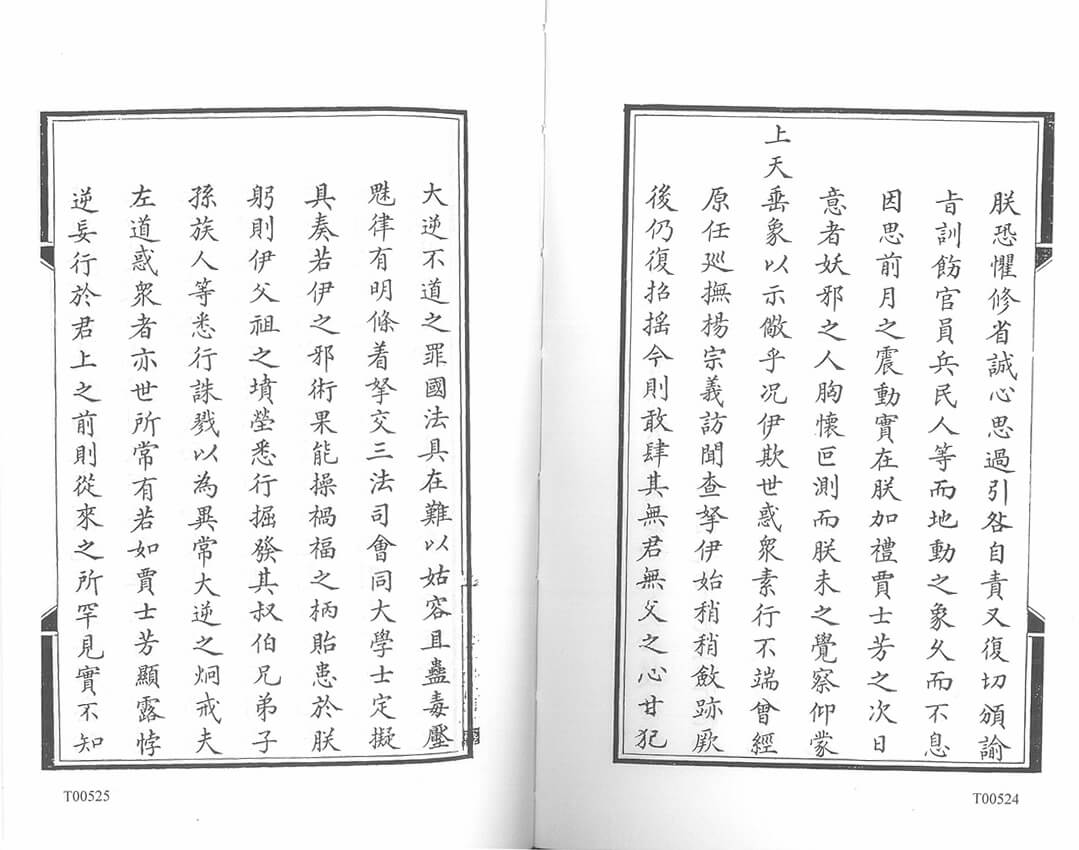 朕恐懼修省誠心思過引咎自責又復切頒諭
旨訓飭官員兵民人等而地動之象乆而不息
因思前月之震動實在朕加禮賈士芳之次日
意者妖邪之人胸懷叵測而朕未之覺察仰蒙
上天垂象以示儆乎况伊欺世惑衆素行不端曾經
原任廵撫楊宗義訪聞查拏伊始稍稍斂跡厥
後仍復招摇今則敢肆其無君無父之心甘犯
T00524
大逆不道之罪國法具在難以姑容且蠱毒壓
魅律有明條着拏交三法司會同大學士定擬
具奏若伊之邪術果能操禍福之柄貽患於朕
躬則伊父祖之墳塋悉行掘發其叔伯兄弟子
孫族人等悉行誅戮以為異常大逆之炯戒夫
左道惑衆者亦世所常有若如賈士芳顯露悖
逆妄行於君上之前則從來之所罕見實不知
T00525